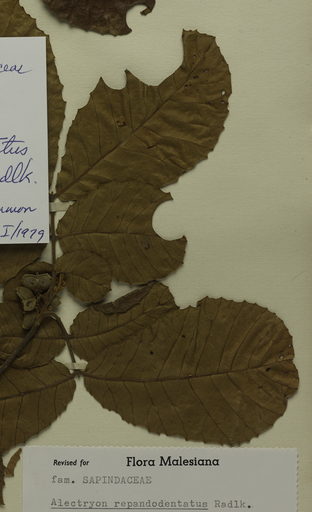 ceae
tus
dlk.
mmon
I/1979
Revised for Flora Malesiana
fam. SAPINDACEAE
Alectryon repandodentatus Radlk.